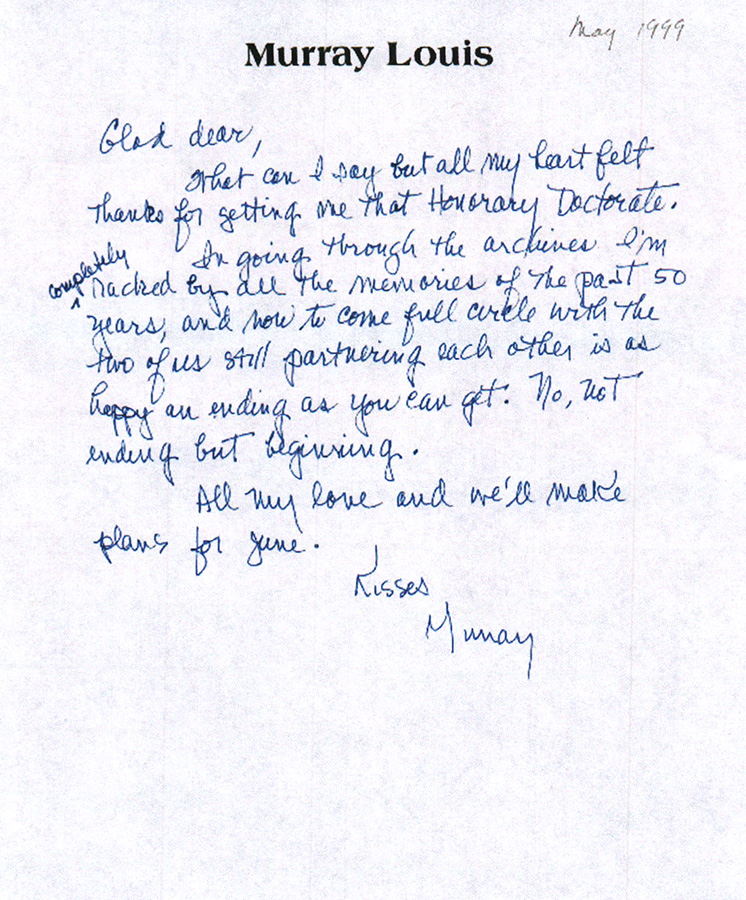 May 1999
Murray Louis
Glad dear,
What can I say but all my heart felt
thanks for getting me that Honorary Doctorate.
In going through the archives I'm
completely racked by all the memories of the past 50
years, and now to come full circle with the
two of us still partnering each other is as
happy an ending as you can get. No, not
ending but beginning.
All my love and we'll make
plans for June.
Kisses
Murray